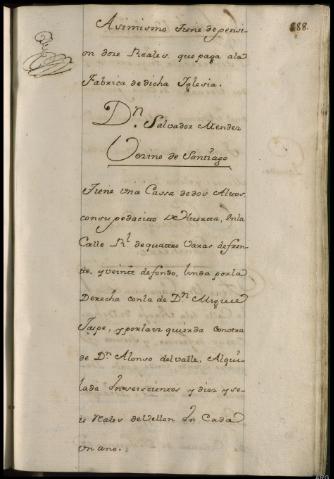 188.
Asimismo tiene de pensi
on doze Reales, que paga a la
Fabrica de dicha Iglesia.
Dn. Salvador Mendez
Vezino de Santiago
Tiene una Cassa de dos Altos,
con su pedacito de Huerta, En la
Calle Rl. de quatro Varas de fren
te, y veinte de fondo, linda por la
Derecha con la de Dn. Miguel
Jaspe, y por la izquierda con otra
de Dn. Alonso del valle, Alqui
lada En seiscientos y diez y se
is Reales de Vellon En Cada
un ano.